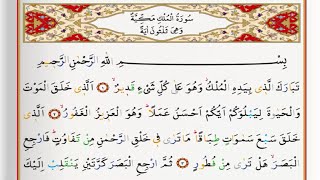 سُورَةُ الْمُلْكِ مَكِّيَّةٌ
وَهِيَ ثَلٰثُونَ اٰيَةً
بِسْـــــمِ اللّٰهِ الرَّحْمٰنِ الرَّحِيمِ
تَبَارَكَ الَّذ۪ي بِيَدِهِ الْمُلْكُ وَهُوَ عَلٰى كُلِّ شَيْءٍ قَد۪يرٌۙ ﴿١﴾ اَلَّذ۪ي خَلَقَ الْمَوْتَ
وَالْحَيٰوةَ لِيَبْلُوَكُمْ اَيُّكُمْ اَحْسَنُ عَمَلًاۜ وَهُوَ الْعَز۪يزُ الْغَفُورُۙ ﴿٢﴾ اَلَّذ۪ي
خَلَقَ سَبْعَ سَمٰوَاتٍ طِبَاقًاۜ مَا تَرٰى ف۪ي خَلْقِ الرَّحْمٰنِ مِنْ تَفَاوُتٍۜ فَارْجِعِ
الْبَصَرَۙ هَلْ تَرٰى مِنْ فُطُورٍ ﴿٣﴾ ثُمَّ ارْجِعِ الْبَصَرَ كَرَّتَيْنِ يَنْقَلِبْ اِلَيْكَ